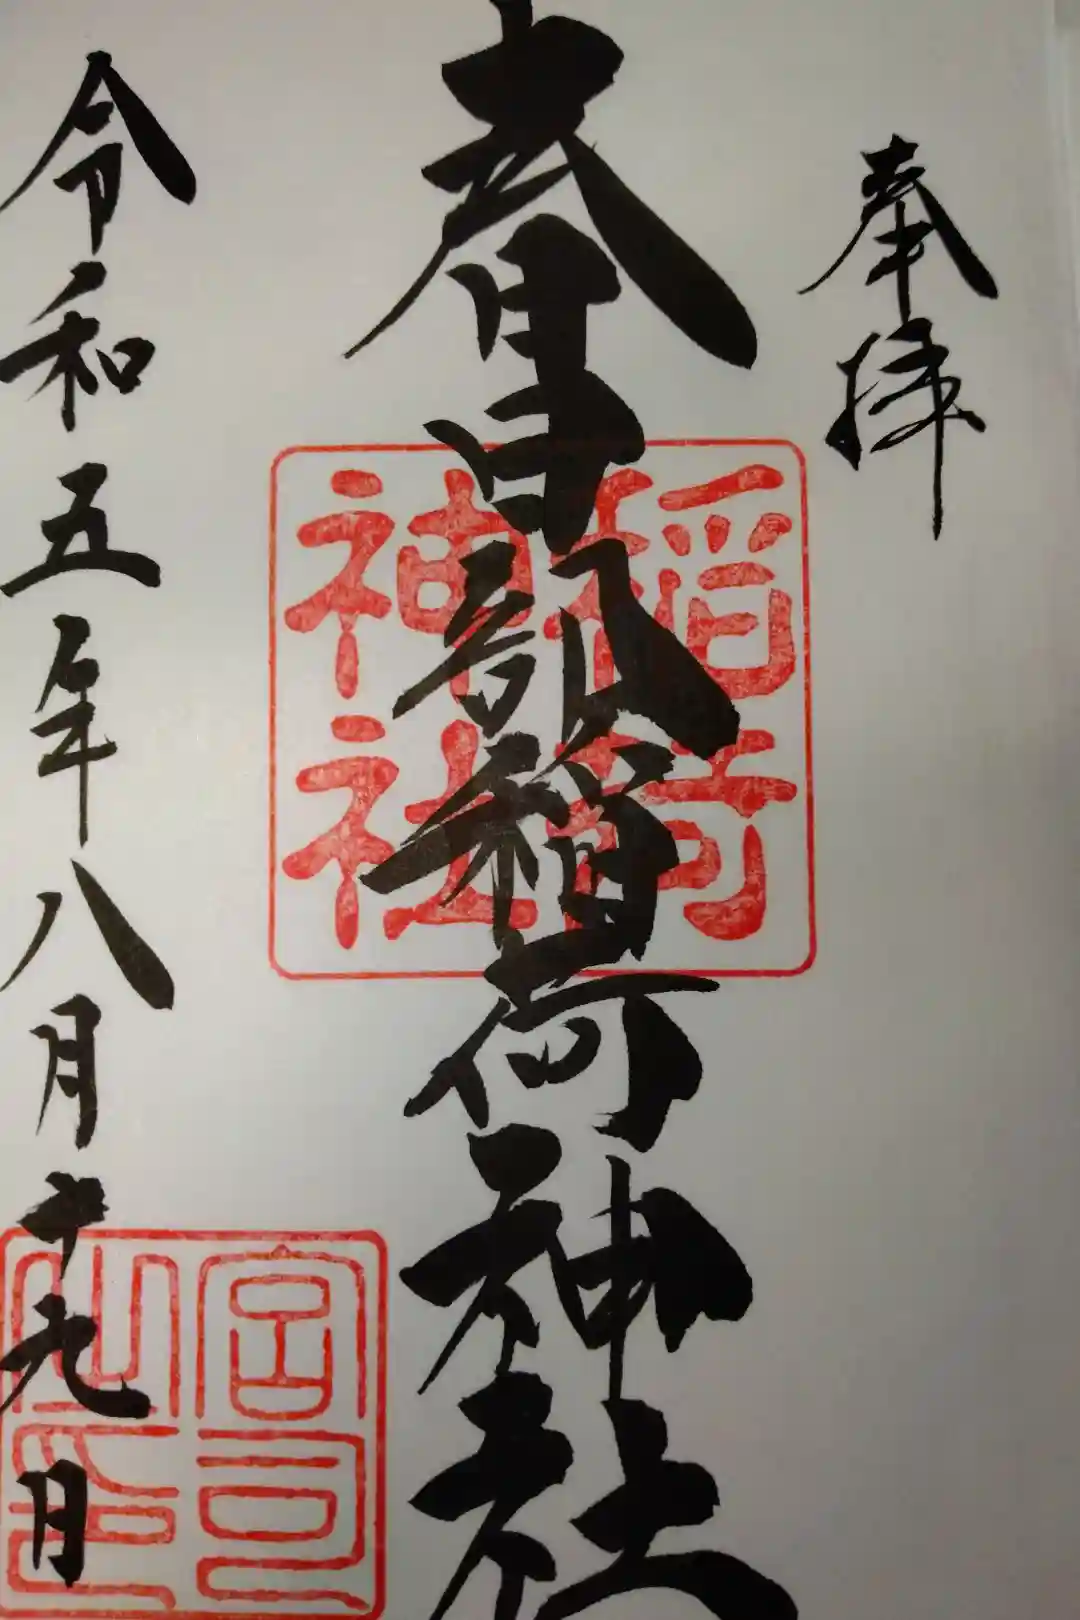 奉拝
春日部稲荷神社
稲荷神社
令和五年八月十九日
宮司之印